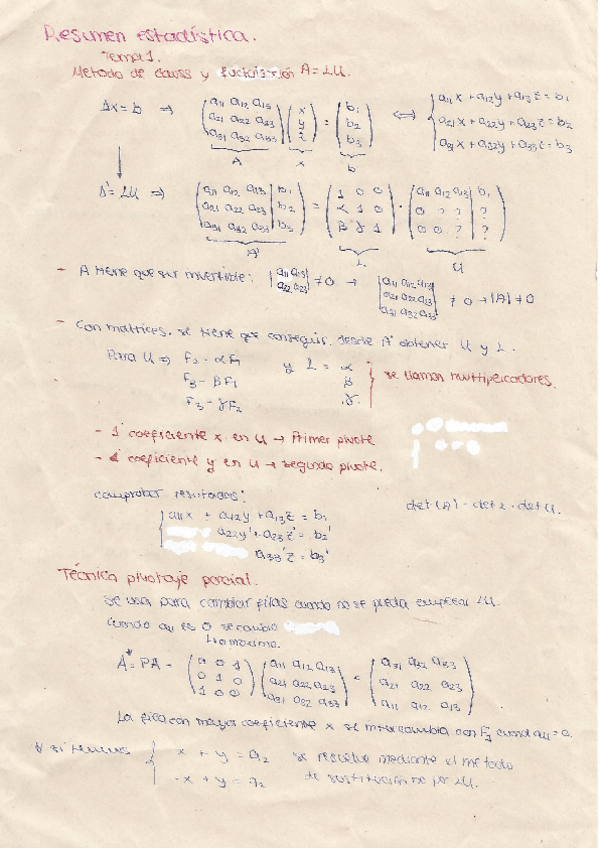 Resumen estadística.
Tema 1.
Metodo de Gauss y factorización A = LU.
Ax = b ⇒ (a11 a12 a13 / a21 a22 a23 / a31 a32 a33) (x / y / z) = (b1 / b2 / b3) ⇔ { a11x + a12y + a13z = b1
a21x + a22y + a23z = b2
a31x + a32y + a33z = b3
A x b
A' = LU ⇒ (a11 a12 a13 | b1 / a21 a22 a23 | b2 / a31 a32 a33 | b3) = (1 0 0 / α 1 0 / β γ 1) · (a11 a12 a13 | b1 / 0 ? ? | ? / 0 0 ? | ?)
A' L U
- A tiene que ser invertible: |a11 a13 / a22 a23| ≠ 0 → |a11 a12 a13 / a21 a22 a23 / a31 a32 a33| ≠ 0 → |A| ≠ 0
- Con matrices. se tiene que conseguir. desde A' obtener U y L.
Para U ⇒ F2 - αF1 y L = α
F3 - βF1 β } se llaman multiplicadores.
F3 - γF2 γ.
- 1º coeficiente x en U → Primer pivote
- coeficiente y en U → segundo pivote.
comprobar resultados:
{ a11x + a12y + a13z = b1 det(A) = det L · det U.
a22y' + a23z' = b2'
a33'z' = b3'
Técnica pivotaje parcial.
Se usa para cambiar filas cuando no se pueda emplear LU.
Cuando a11 es 0 se cambia
La máxima.
A* = PA = (0 0 1 / 0 1 0 / 1 0 0) (a11 a12 a13 / a21 a22 a23 / a31 a32 a33) = (a31 a32 a33 / a21 a22 a23 / a11 a12 a13).
La fila con mayor coeficiente x se intercambia con F1 cuando a11 = 0.
Y si tenemos { x + y = a2 se resuelve mediante el método
-x + y = a2 de sustitución no por LU.